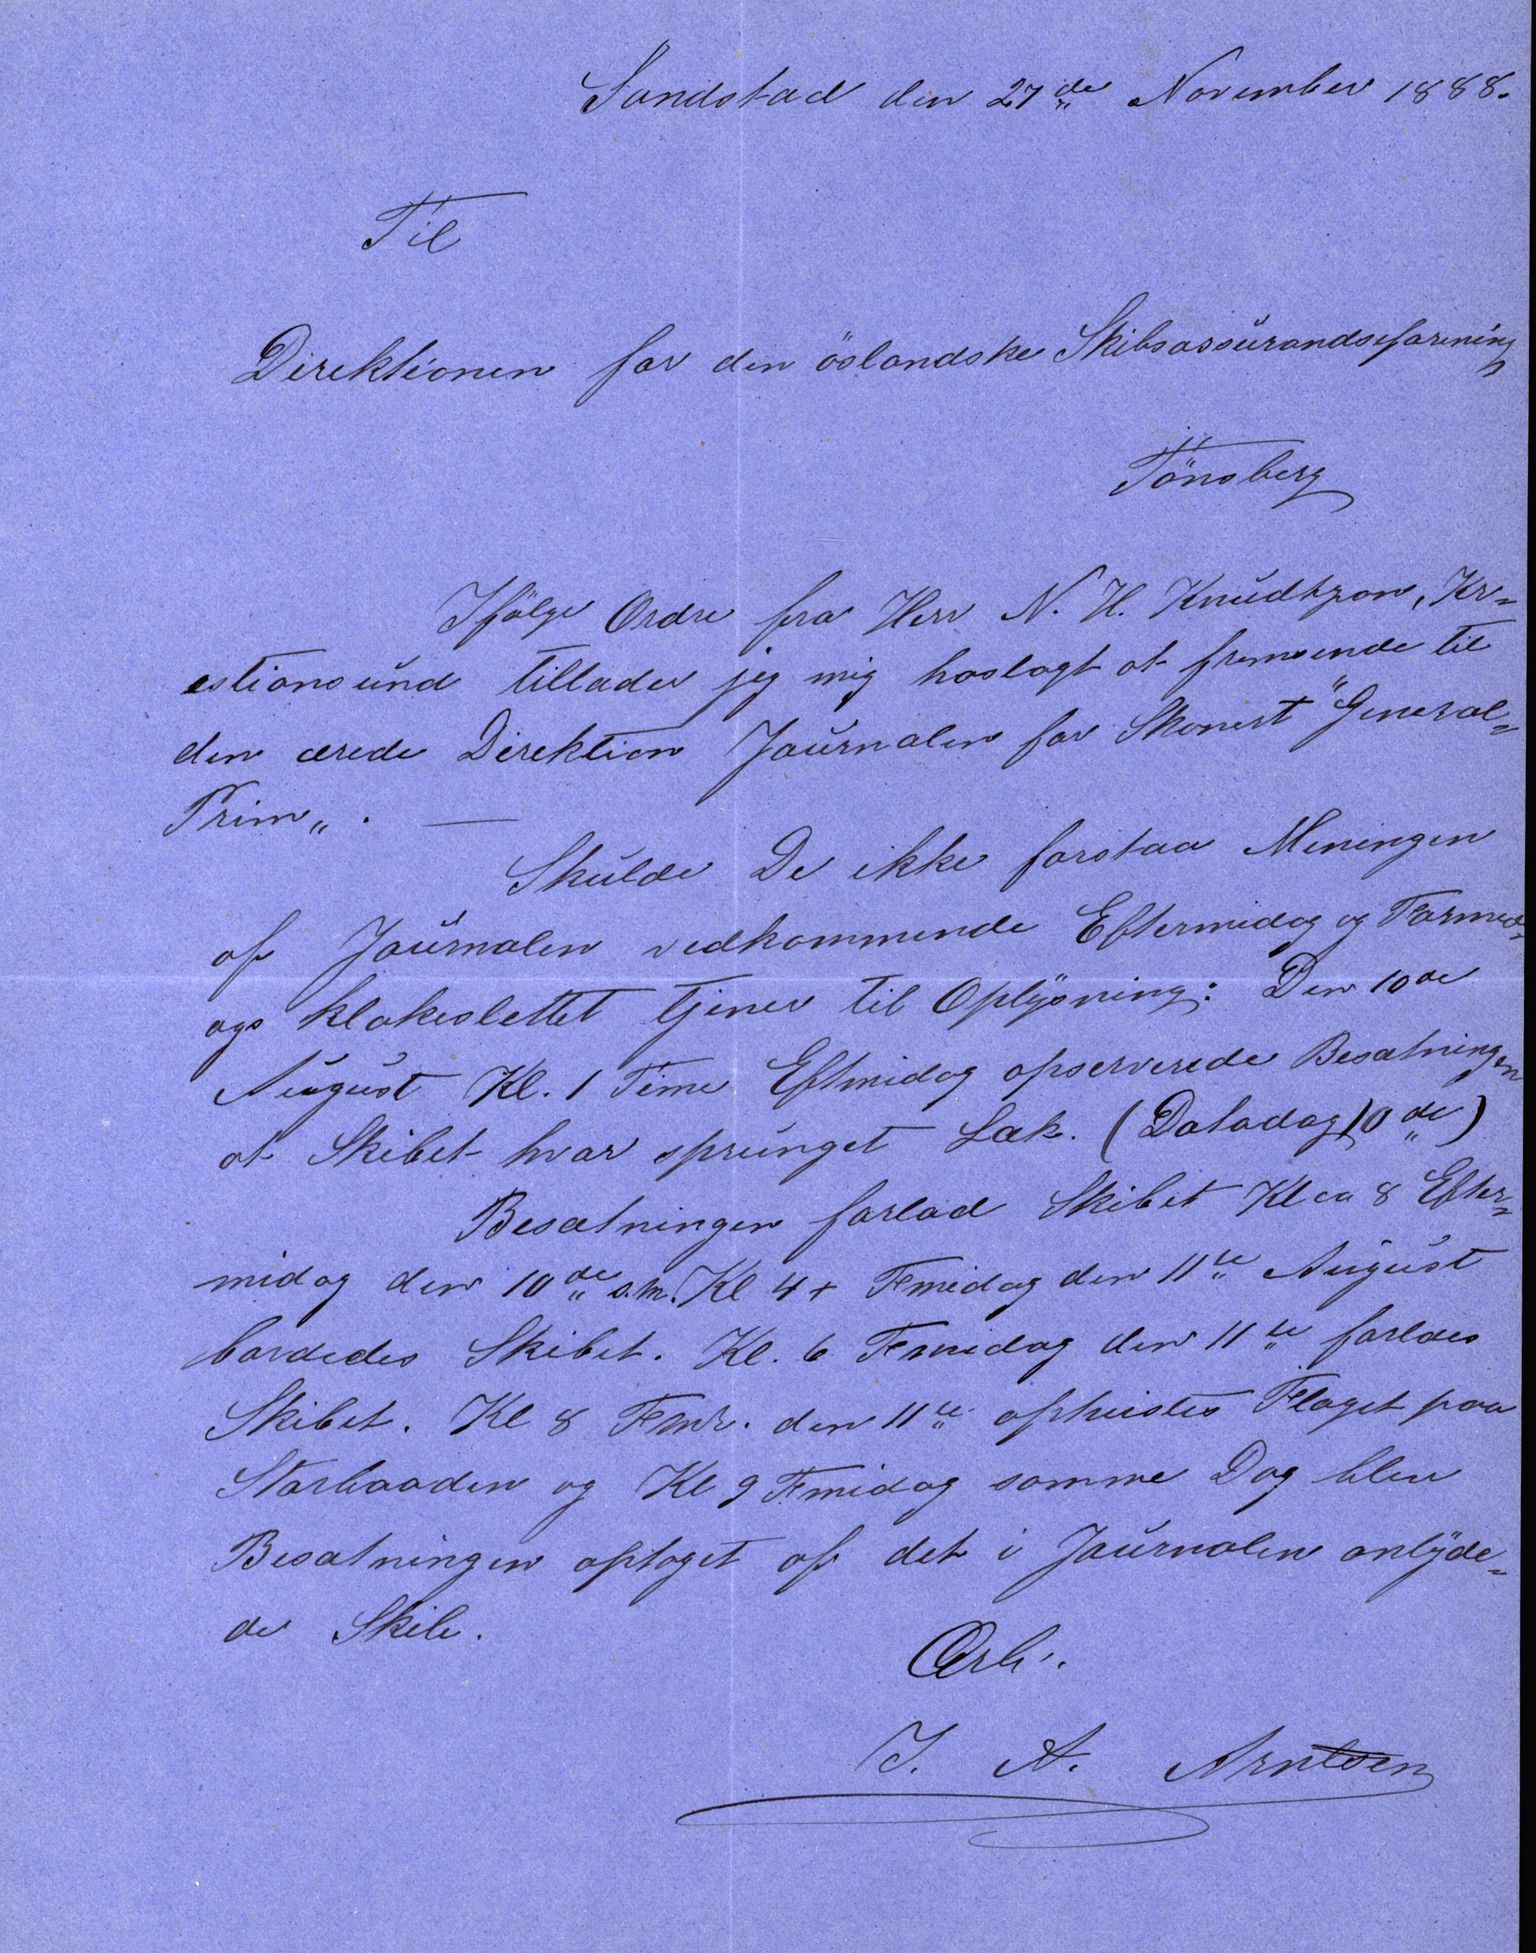 Sandstad den 27de November 1888.
Til
Direktionen for den öslandske Skibsassurandseforening
Tönsberg
Ifölge Ordre fra Herr N. H. Knudtzon, Kr-
istiansund tillader jeg mig hoslagt at fremsende til
den ærede Direktion Journalen for Skonert "General-
Prim„. —
Skulde De ikke forstaa Meningen
af Journalen vedkommende Eftermidag og Formid-
ags klokeslettet tjener til Oplysning: Den 10de
August Kl. 1 Time Eftmidag opserverede Besætningen
at Skibet hvar sprunget Læk. (Datodag 10de)
Besætningen forlod Skibet Kl ca 8 Efter-
midag den 10de s.m. Kl 4 + Fmidag den 11te August
bordedes Skibet. Kl. 6 Fmidag den 11te forlodes
Skibet. Kl 8 Fmd. den 11te opheistes Flaget paa
Storbaaden og Kl 9 Fmidag samme Dag blev
Besætningen optaget af det i Journalen anlyde-
de Skib.
Ærb.
J. A. Arntsen